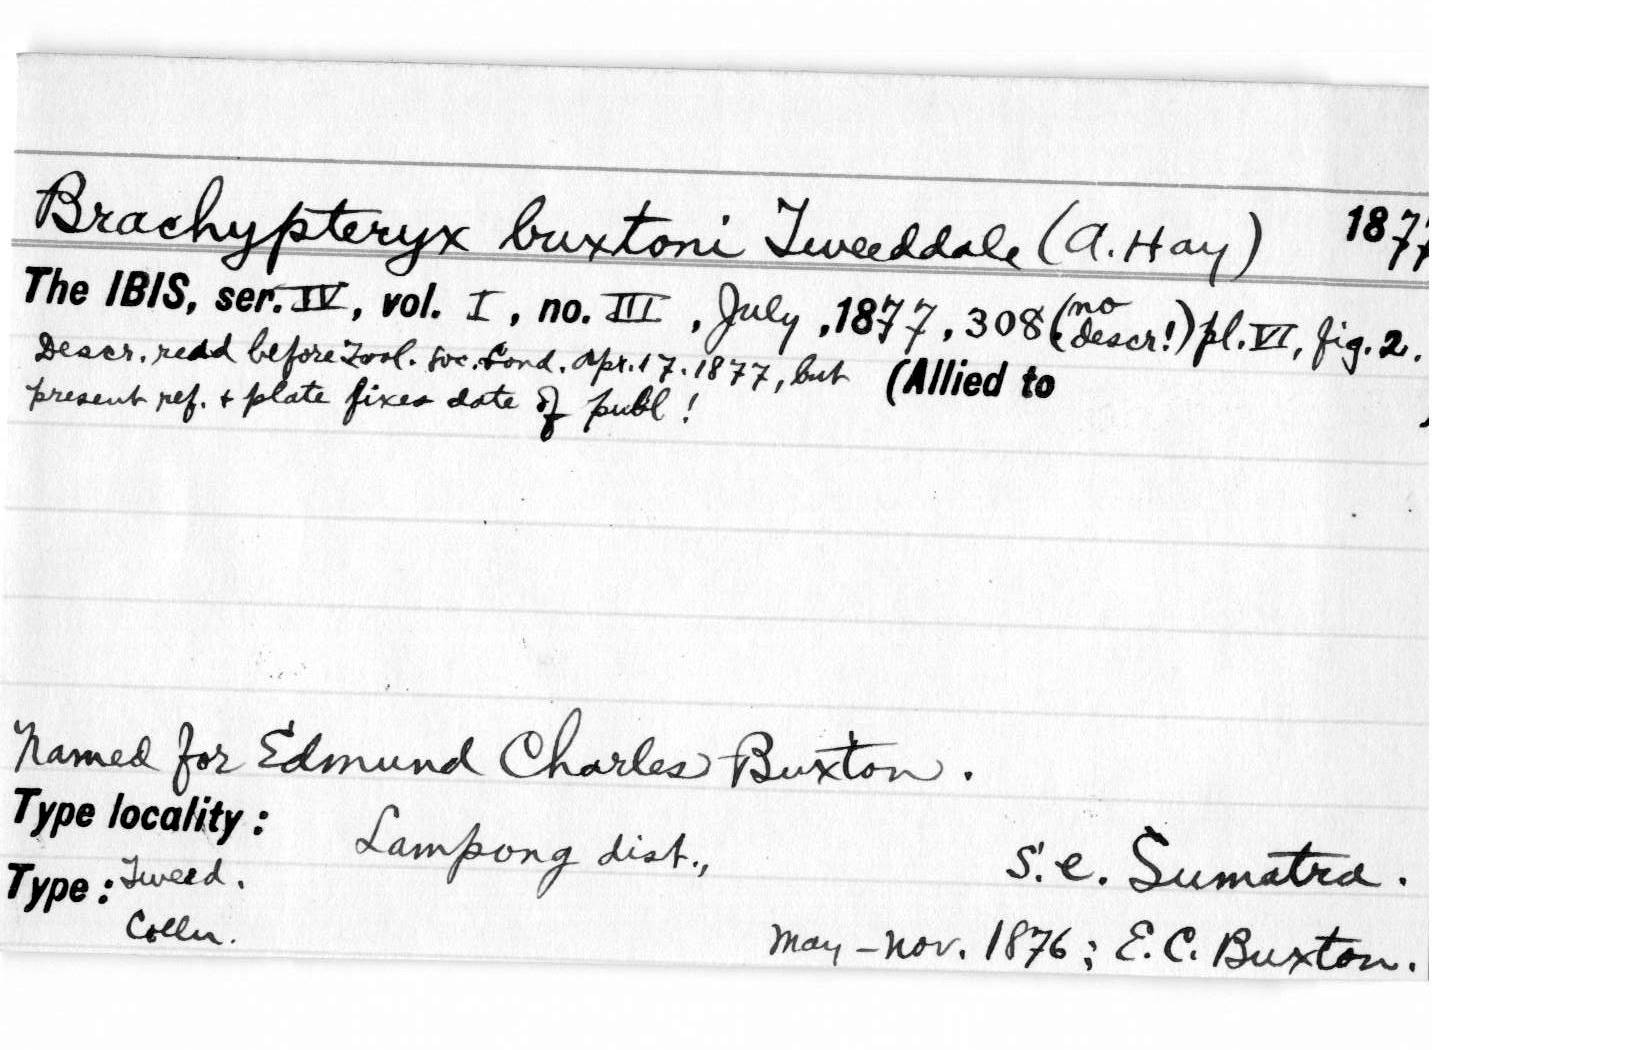 Brachypteryx buxtoni Tweeddale (A. Hay) 1877
The IBIS, ser. IV, vol. I, no. III, July, 1877, 308 (no descr!) pl. VI, fig. 2.
Descr. read before Zool. Soc. Lond. Apr. 17. 1877, but (Allied to )
present ref. + plate fixes date of publ!
Named for Edmund Charles Buxton.
Type locality: Lampong dist., S.E. Sumatra.
Type: Tweed.
Colln. May - Nov. 1876; E.C. Buxton.